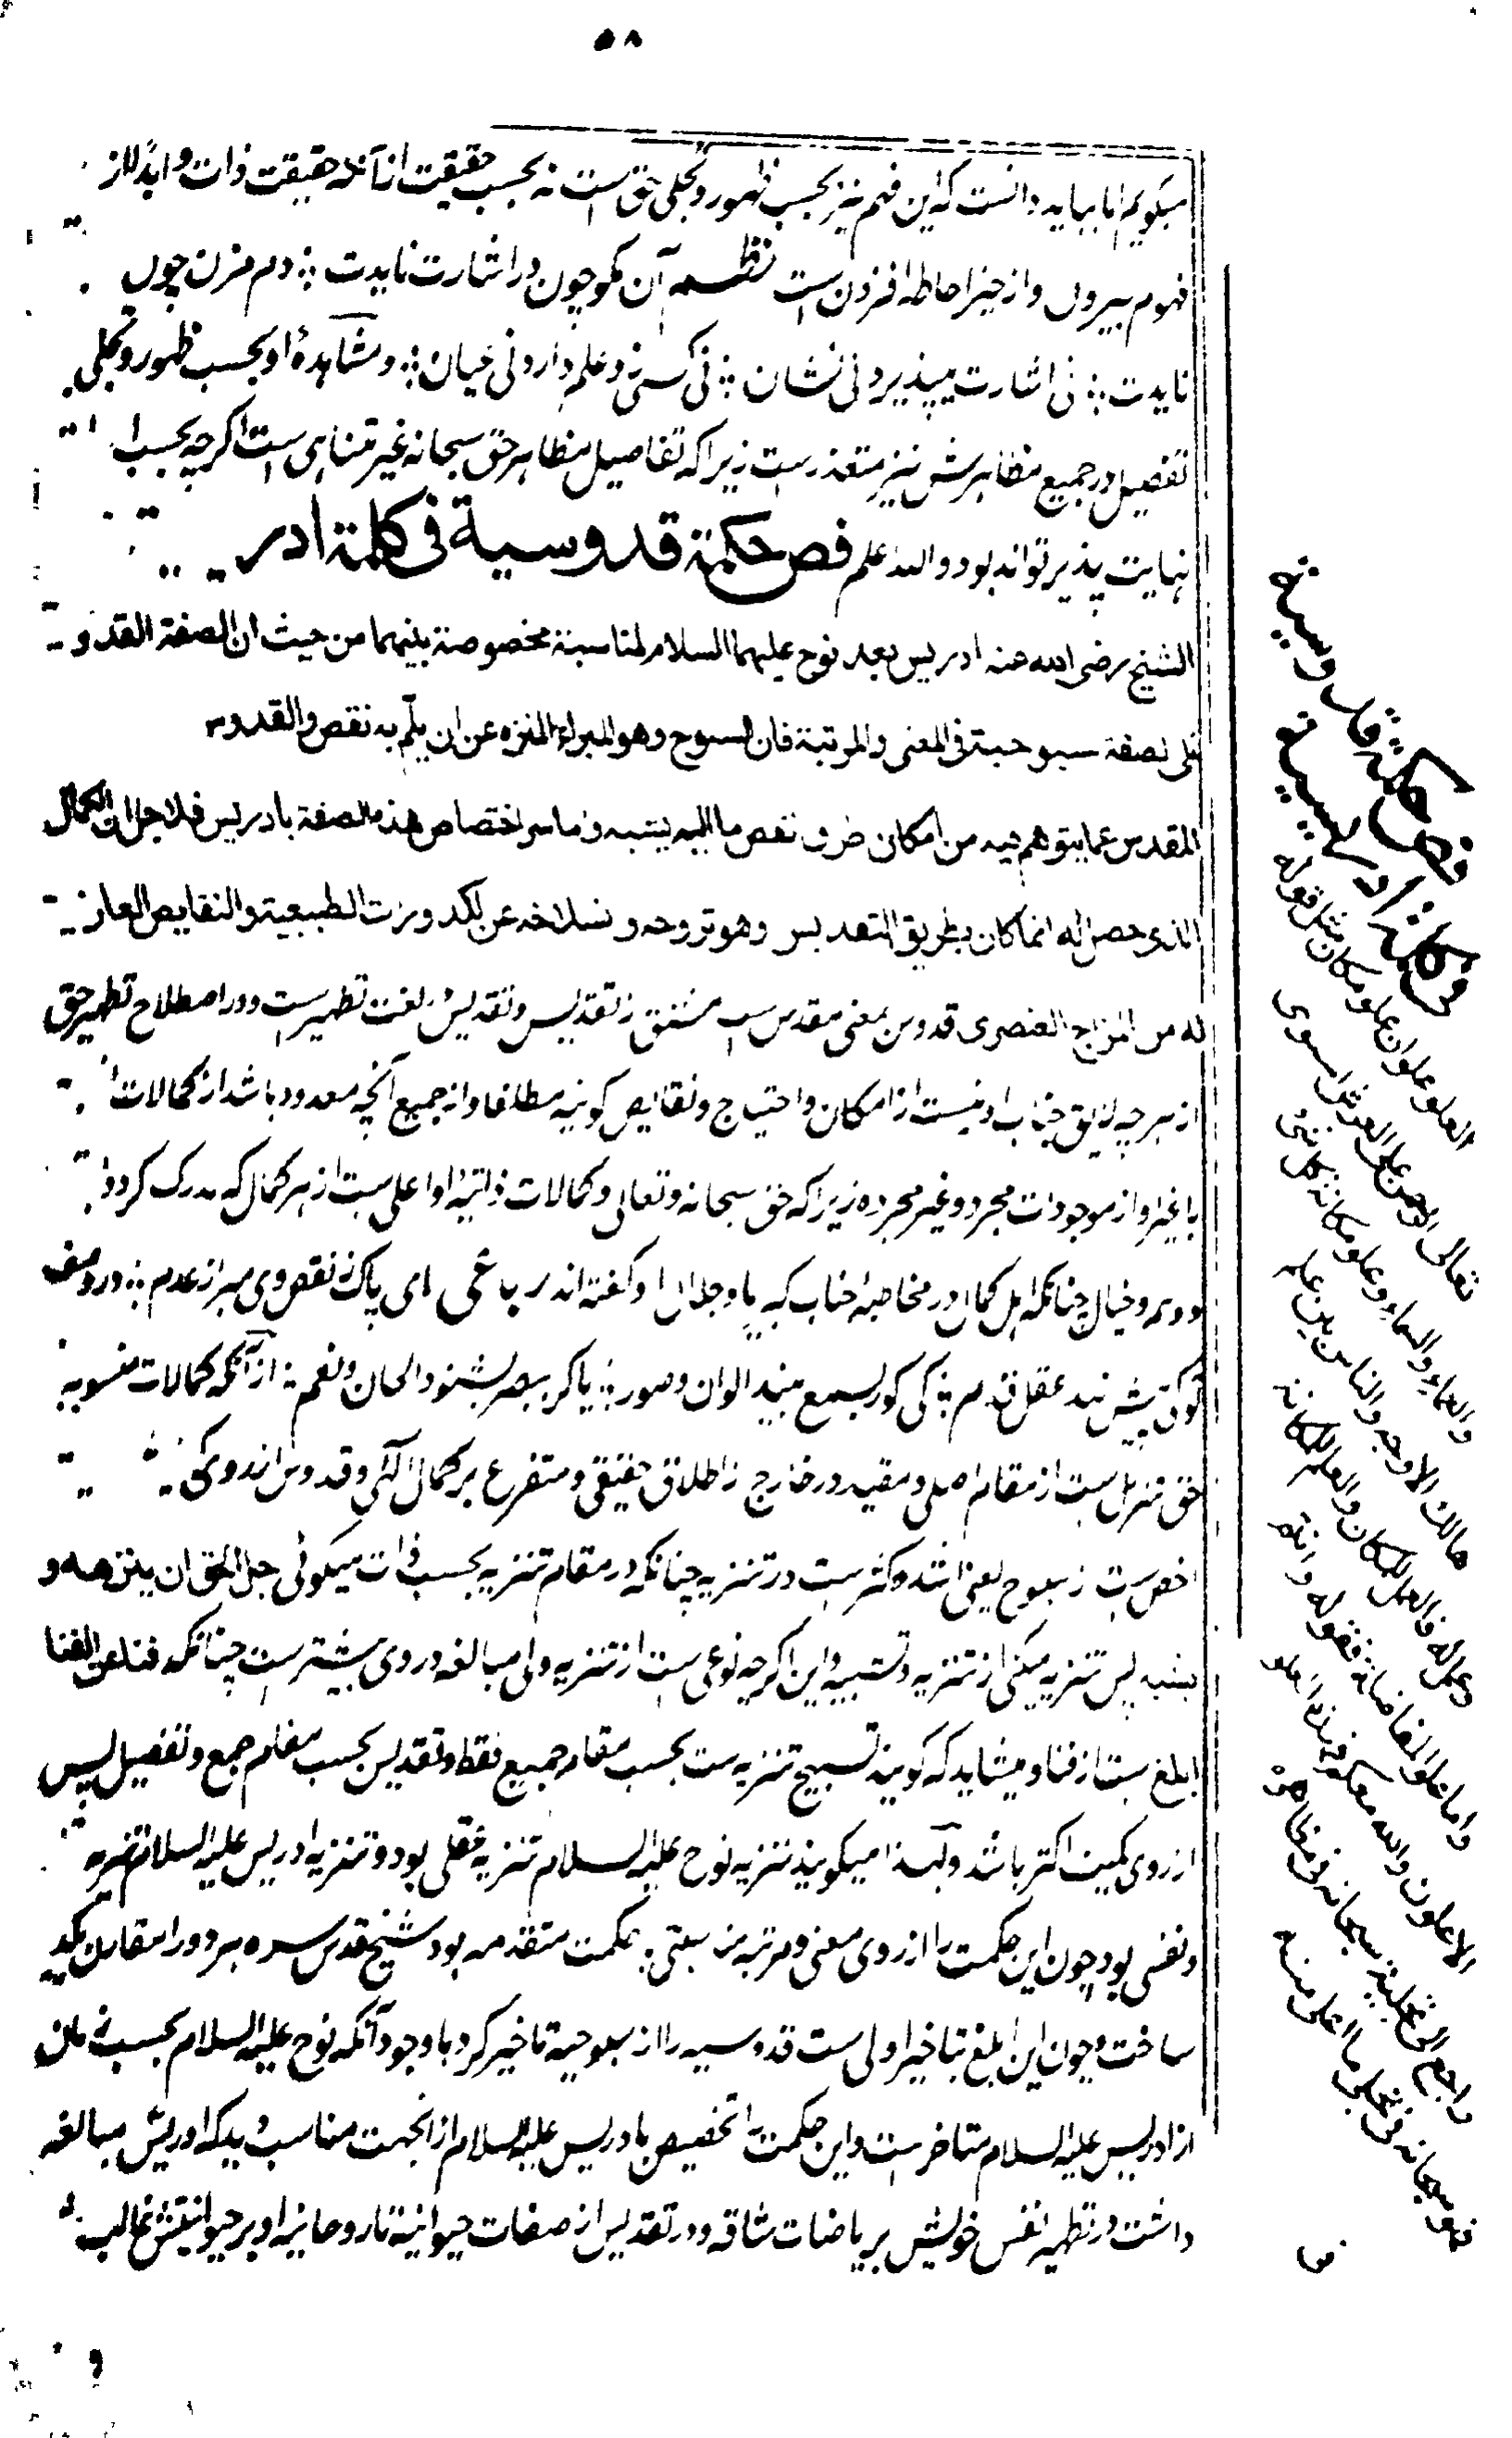 ۵۸
میگویم اما بباید دانست که این فهم نیز بحسب ظهور و تجلی حق است نه بحسب حقیقت از آنکه حقیقت ذات او
فهوم بیرون و از حیز احاطه افزون ست نظم آن مگو چون در اشارت نایدت ؛ دم مزن چون
نایدت ؛ نی اشارت میپذیرد نی نشان ؛ نی کسی زو علم دارد نی عیان ؛ و مشاهدهٔ او بحسب ظهور و تجلی
تفصیل در جمیع مظاهرش نیز متعذرست زیرا که تفاصیل مظاهر حق سبحانه غیر متناهی ست اگرچه بحسب
نهایت پذیر تواند بود والله اعلم فص حکمة قدوسیة فی کلمة ادر
الشیخ رضی الله عنه ادریس بعد نوح علیهما السلام لمناسبة مخصوصة بینهما من حیث ان الصفة القدو
تلی لصفة سبوحیة فی المعنی والمرتبة فان السبوح وهو المبراء المنزه عن ان یلم به نقص والقدوس
المقدس عما یتوهم فیه من امکان طرق نقص ما الیه یشینه واما سر اختصاص هذه الصفة بادریس فلاجل ان الکمال
الذی حصل له انما کان بطریق التقدیس وهو تروحه وانسلاخه عن الکدورات الطبیعیة والنقایص العار
له من المزاج العنصری قدوس بمعنی مقدس ست مشتق از تقدیس و تقدیس در لغت تطهیرست و در اصطلاح تطهیر حق
از هرچه لایق جناب او نیست از امکان و احتیاج و نقایص کونیه مطلقا و از جمیع آنچه معدود باشد از کمالات
با غیر او از موجودات مجرد و غیر مجرده زیرا که حق سبحانه و تعالی و کمالات ذاتیهٔ او اعلی ست از هر کمال که مدرک گردد
و وهم و خیال چنانکه اهل کمال در مخاطبهٔ جناب کبریا و جلال او گفته اند رباعی ای پاک ز نقص وی مبرا ز عدم ؛ در وصف
تو کی پیش نهد عقل قدم ؛ کی کور بسمع بیند الوان و صور ؛ یا کر ببصر بشنود الحان و نغم ؛ از آنکه کمالات منسوبه
حق متنزل ست از مقام اصلی و مقید و خارج ز اطلاق حقیقی و متفرع بر کمال الهی و قدوس از روی
اخص ست ز سبوح یعنی اشد و کثرست در تنزیه چنانکه در مقام تنزیه بحسب ذات میگوئی جل الحق ان ینزه و
یشبه پس تنزیه میکنی از تنزیه و تشبیه و این اگرچه نوعی ست از تنزیه ولی مبالغه در وی بیشترست چنانکه فناء عن الفنا
ابلغ ست از فنا و میشاید که گویند تسبیح تنزیه ست بحسب مقام جمیع فقط و تقدیس بحسب مقام جمع و تفصیل پس
از روی کمیت اکثر باشد و لهذا میگویند تنزیه نوح علیه السلام تنزیه عقلی بود و تنزیه ادریس علیه السلام تنزیه
و نفسی بود چون این حکمت را از روی معنی و مرتبه مناسبتی بحکمت متقدمه بود شیخ قدس سره هر دو را مقارن یکدیگر
ساخت و چون این ابلغ بتاخیر اولی ست قدوسیه را از سبوحیه تاخیر کرد با وجود آنکه نوح علیه السلام بحسب زمان
از ادریس علیه السلام متاخرست و این حکمت را تخصیص بادریس علیه السلام از آنجهت مناسب دید که ادریس مبالغه
داشت در تطهیر نفس خویش بریاضات شاقه و در تقدیس از صفات حیوانیة تا روحانیه او بر حیوانیتش غالب
فص حکمة قدوسیة
فی کلمة ادریسیة
العلو علوان علو مکان مثل قوله
تعالی الرحمن علی العرش استوی
والعماء والسماء وعلو مکانة کل شئ
هالک الا وجهه والناس بین علم
وعمل فالعمل للمکان والعلم للمکانة
واما علو المفاضلة فقوله وانتم
الاعلون والله معکم فهذا
راجع الی تجلیه سبحانه فی مظاهره
فهو سبحانه فی تجلی ما اعلی منه
فی